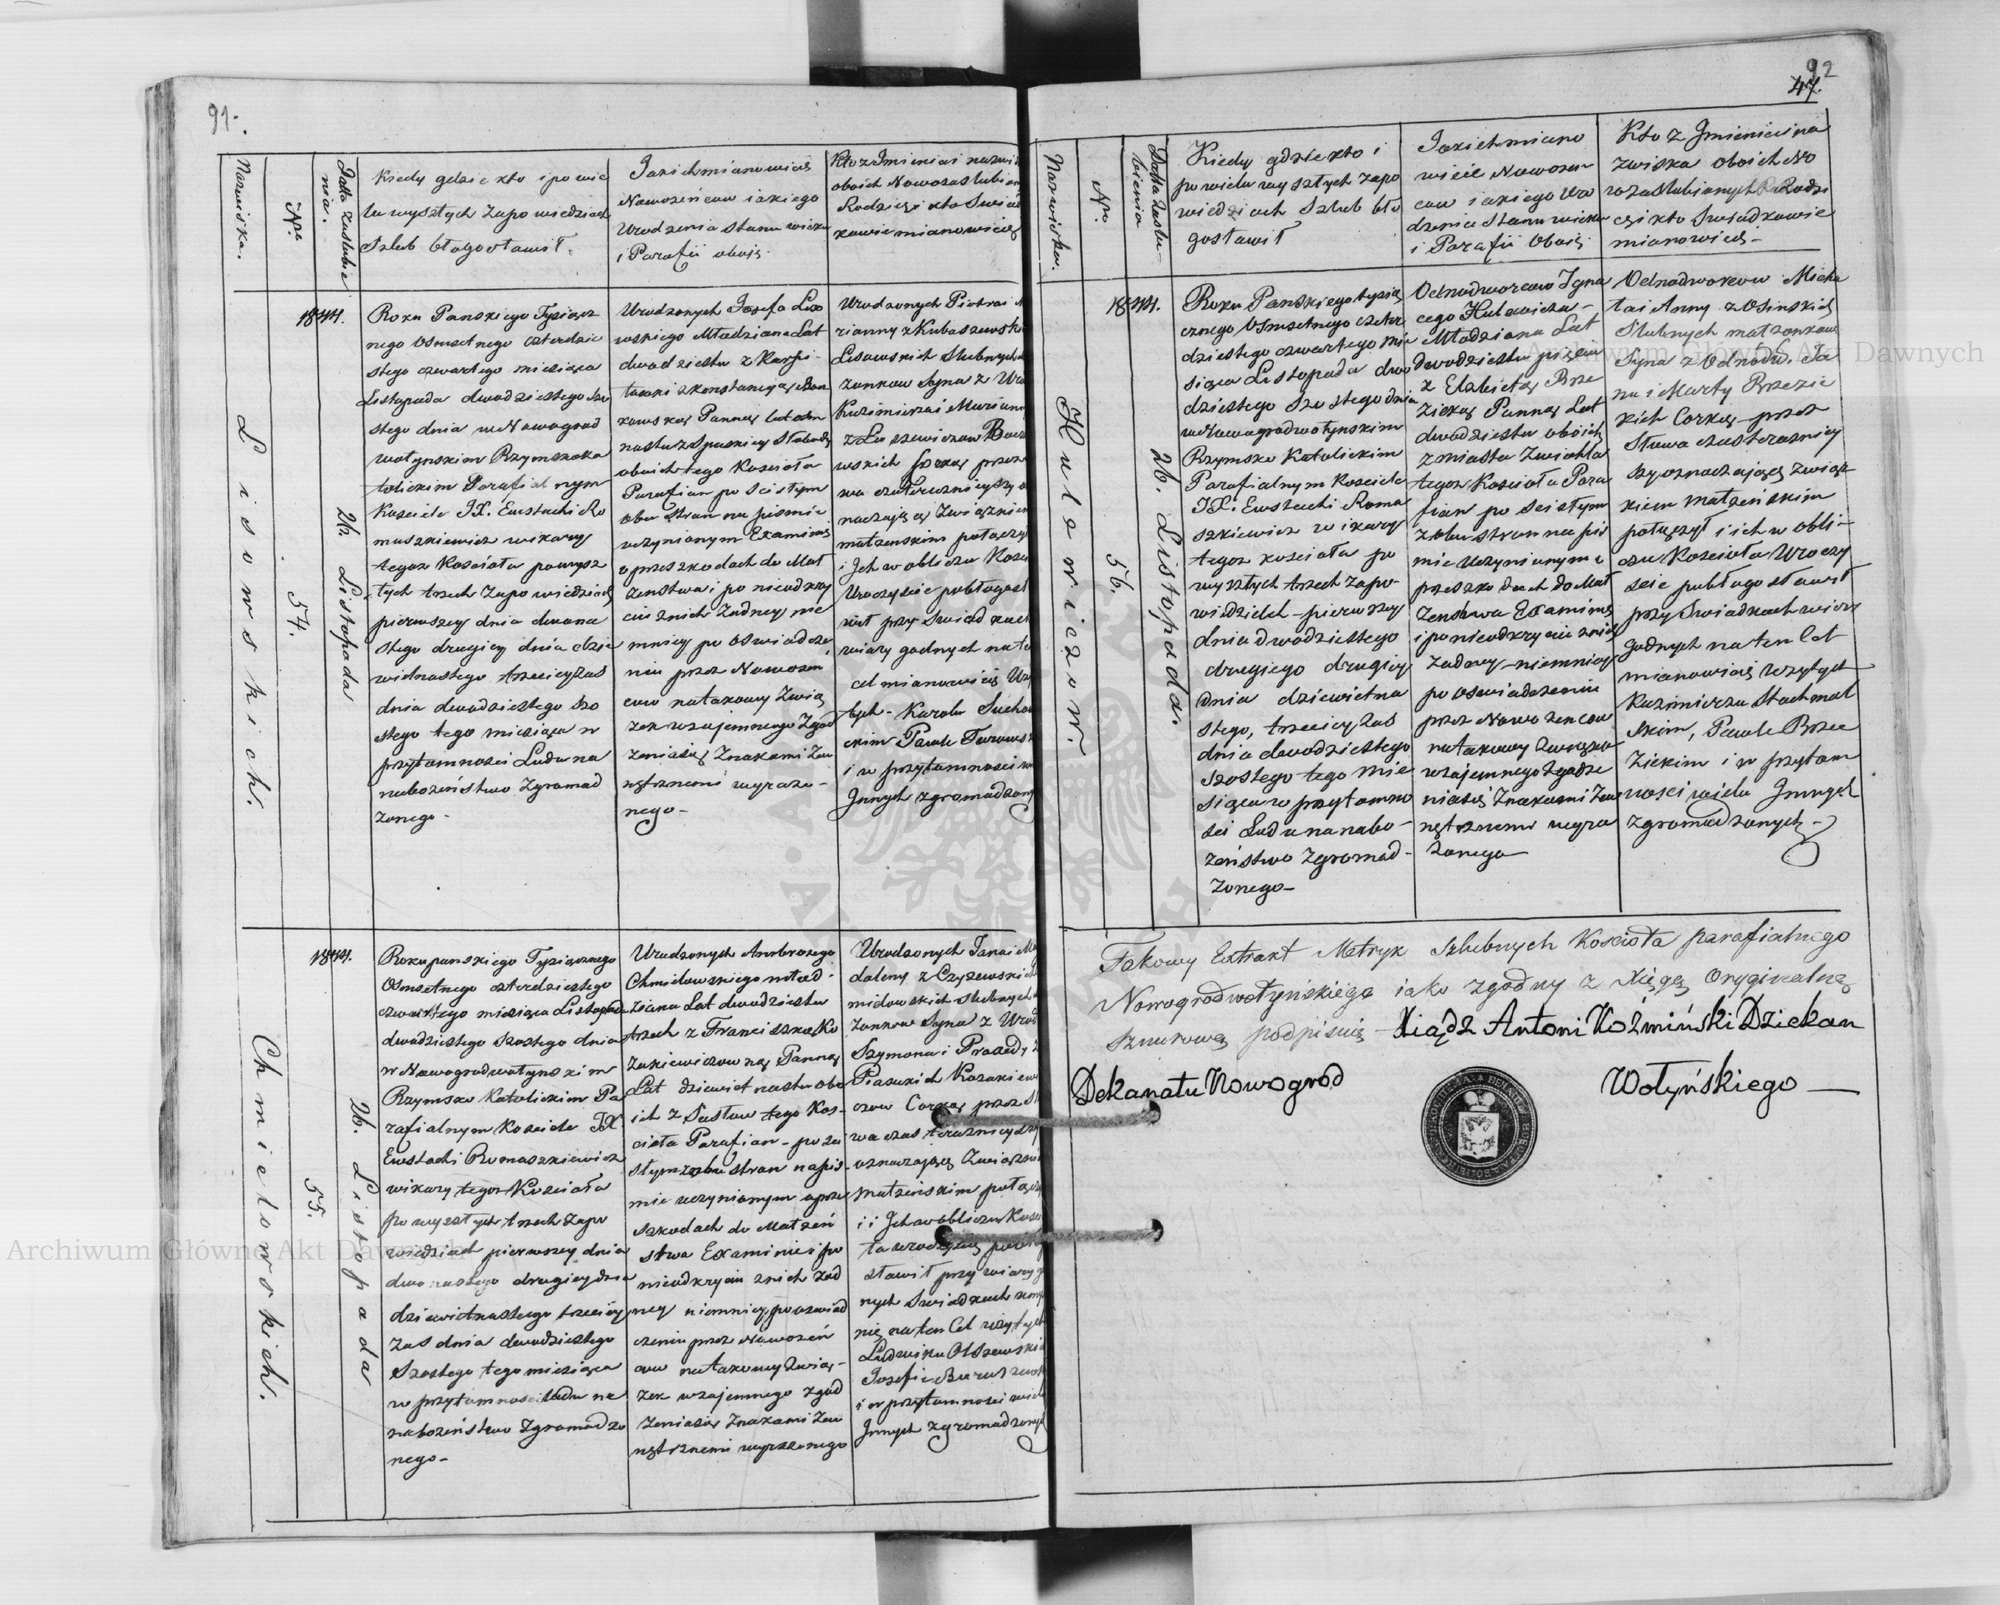 91.
Nazwiska.
Nro
Datta zaslubie
nia.
Kiedy gdzie kto i po wie
lu wyszłych zapowiedziach
Szlub błogosławił.
Jakich mianowicie
Nowożeńcow i jakiego
Urodzenia stanu wieku
i Parafii oboje
Kto z Imienia i nazwi
oboich Nowozaslubion
Rodzicy i kto Swiad
kowie mianowicie
Lisowskich.
54.
1844.
26. Listopada
Roku Panskiego Tysiącz
nego Osmsetnego czterdzie
stego czwartego miesiąca
Listopada dwudziestego szo
stego dnia w Nowogrod
wołynskim Rzymskoka
tolickim Parafialnym
Kosciele JX. Eustachi Ro
maszkiewicz wikary
tegoz Kościoła po wysz
łych trzech zapowiedziach
pierwszej dnia dwuna
stego drugiej dnia dzie
wietnastego trzeciej zas
dnia dwudziestego szo
stego tego miesiąca w
przytomnosci Ludu na
nabożeństwo zgromad
zonego -
Urodzonych Josefa Liso
wskiego Młodziana Lat
dwudziestu z Karpi-
łowki z Konstancyą Bon
kowską Panną lat
nastu z Spaskiej Słobody
oboich tego Kościoła
Parafian po scisłym
obu stron na pismie
uczynionym Examinie
o przeszkodach do Mał
zenstwa i po nieodkry
ciu z nich żadney nie
mniey po oswiadcze
niu przez Nowożen
cow na takowy Zwią
zek wzajemnego Zgod
zenia się Znakami Zew
nętrznemi wyrażo-
nego -
Urodzonych Piotra i M
rianny z Kubaszewski
Lisowskich Slubnych
zonkow Syna z Uro
Kazimierza i Mariann
z Luszewiczow Bon
wskich Corką przez
wa czaterazniejszy o
naczającą Związkiem
małzenskim połączy
i Ich w obliczu Kosci
Uroczyscie pobłogosł
wił przy Swiadkach
wiary godnych na te
cel mianowicie Uży
tych - Karolu Sucho
ckim Pawle Turowsk
i w przytomnosci w
Innych zgromadzony
Chmielowskich.
55.
1844.
26. Listopada
Roku panskiego Tysiącznego
Osmsetnego czterdziestego
czwartego miesiąca Listopada
dwudziestego szostego dnia
w Nowogrodwołynskim
Rzymsko Katolickim Pa
rafialnym Kosciele JX
Eustachi Romaszkiewicz
wikary tegoz Kosciola
po wyszłych trzech zapo
wiedziach pierwszey dnia
dwunastego drugiej dnia
dziewietnastego trzeciej
zas dnia dwudziestego
szostego tego miesiąca
w przytomnosci ludu na
nabożeństwo zgromadzo
nego -
Urodzonych Ambrożego
Chmielowskiego młod-
ziana Lat dwudziestu
trzech z Franciszką Ko
zakiewiczowną Panną
Lat dziewietnastu obo
ich z Susłow tego Kos-
cioła Parafian - po sci
słym z obu stron na pis-
mie uczynionym o prze
szkodach do Małzeń
stwa Examinie i po
nieodkryciu z nich żad
ney niemniey po oswiad
czeniu przez Nowożeń
cow na takowy Zwią-
zek wzajemnego zgod
zenia się Znakami Zew
nętrznemi wyrazonego
Urodzonych Jana i Ma
daleny z Czyżewskich
mielowskich slubnych
zonkow Syna z Uro
Szymona i Praxedy z
Piaseckich Kozakiew
czow Corką przez sł
wa czas terażnieyszy
oznaczającą Związkiem
małżeńskim połączy
i i Ich w obliczu Kosc
ła uroczyscie pobłog
sławił przy wiary g
nych Swiadkach
nię na ten Cel użytych
Ludwiku Olszewskim
Jozefie
i w przytomnosci wiel
Innych zgromadzonych
92
47.
Nazwiska.
Nro.
Datta zaslu-
bienia
Kiedy gdzie kto i
po wielu wyszłych zapo
wiedziach Szlub bło
gosławił
Jakich miano
wicie Nowożen
cow i jakiego Uro
dzenia Stanu wieku
i Parafii Oboje
Kto z Imienia i na
zwiska oboich No
wozaslubionych Rodzi
cy i kto Swiadkowie
mianowicie -
Hulewiczow.
56.
1844.
26. Listopada.
Roku Panskiego tysią
cznego Osmsetnego czter
dziestego czwartego mie
siąca Listopada dwu
dziestego szostego dnia
w Nowogrodwołynskim
Rzymsko Katolickim
Parafialnym Kosciele
JX. Eustachi Roma
szkiewicz wikary
tegoz kosciola po
wyszłych trzech zapo-
wiedziach - pierwszey
dnia dwudziestego
drugiego drugiej
dnia dziewietna
stego, trzeciej zas
dnia dwudziestego
szostego tego mie
siąca w przytomno
sci Ludu na nabo-
żeństwo zgromad-
zonego -
Odnodworcow Igna
cego Hulewicza -
Młodziana Lat
dwudziestu pięciu
z Elzbietą Brze
zicką Panną Lat
dwudziestu oboich
z miasta Zwiahla
tegoz Kosciola Para
fian po scisłym
z obu stron na pis
mie uczynionym o
przeszkodach do Mał
zenstwa Examinie
i po nieodkryciu z nich
żadney - niemniey
po oswiadczeniu
przez Nowożencow
na takowy Związek
wzajemnego zgodze
nia się Znakami Zew
nętrznemi wyra
zonego -
Odnodworcow Micha
ła i Anny z Osinskich
Slubnych małzonkow
Syna z Odnodw. Ja
na i Marty Brzezic
kich Corką - przez
słowa czasterazniej
szy oznaczającą związ-
kiem małżeńskim
połączył i ich w obli-
czu Kosciola Uroczy
scie pobłogosławił
przy Swiadkach wiary
godnych na ten Cel
mianowicie użytych
Kazimierzu Stachmal
skim, Pawle Brze
zickim i w przytom
nosci wielu Innych
zgromadzonych -
Takowy Extrakt Metryk Szlubnych Koscioła parafialnego
Nowogrodwołyńskiego jako zgodny z Xięgą Oryginalną
sznurową podpisuię - Xiądz Antoni Koźmiński Dziekan
Dekanatu Nowogrod Wołyńskiego -
Archiwum Główne Akt Dawnych
Archiwum Główne Akt Dawnych